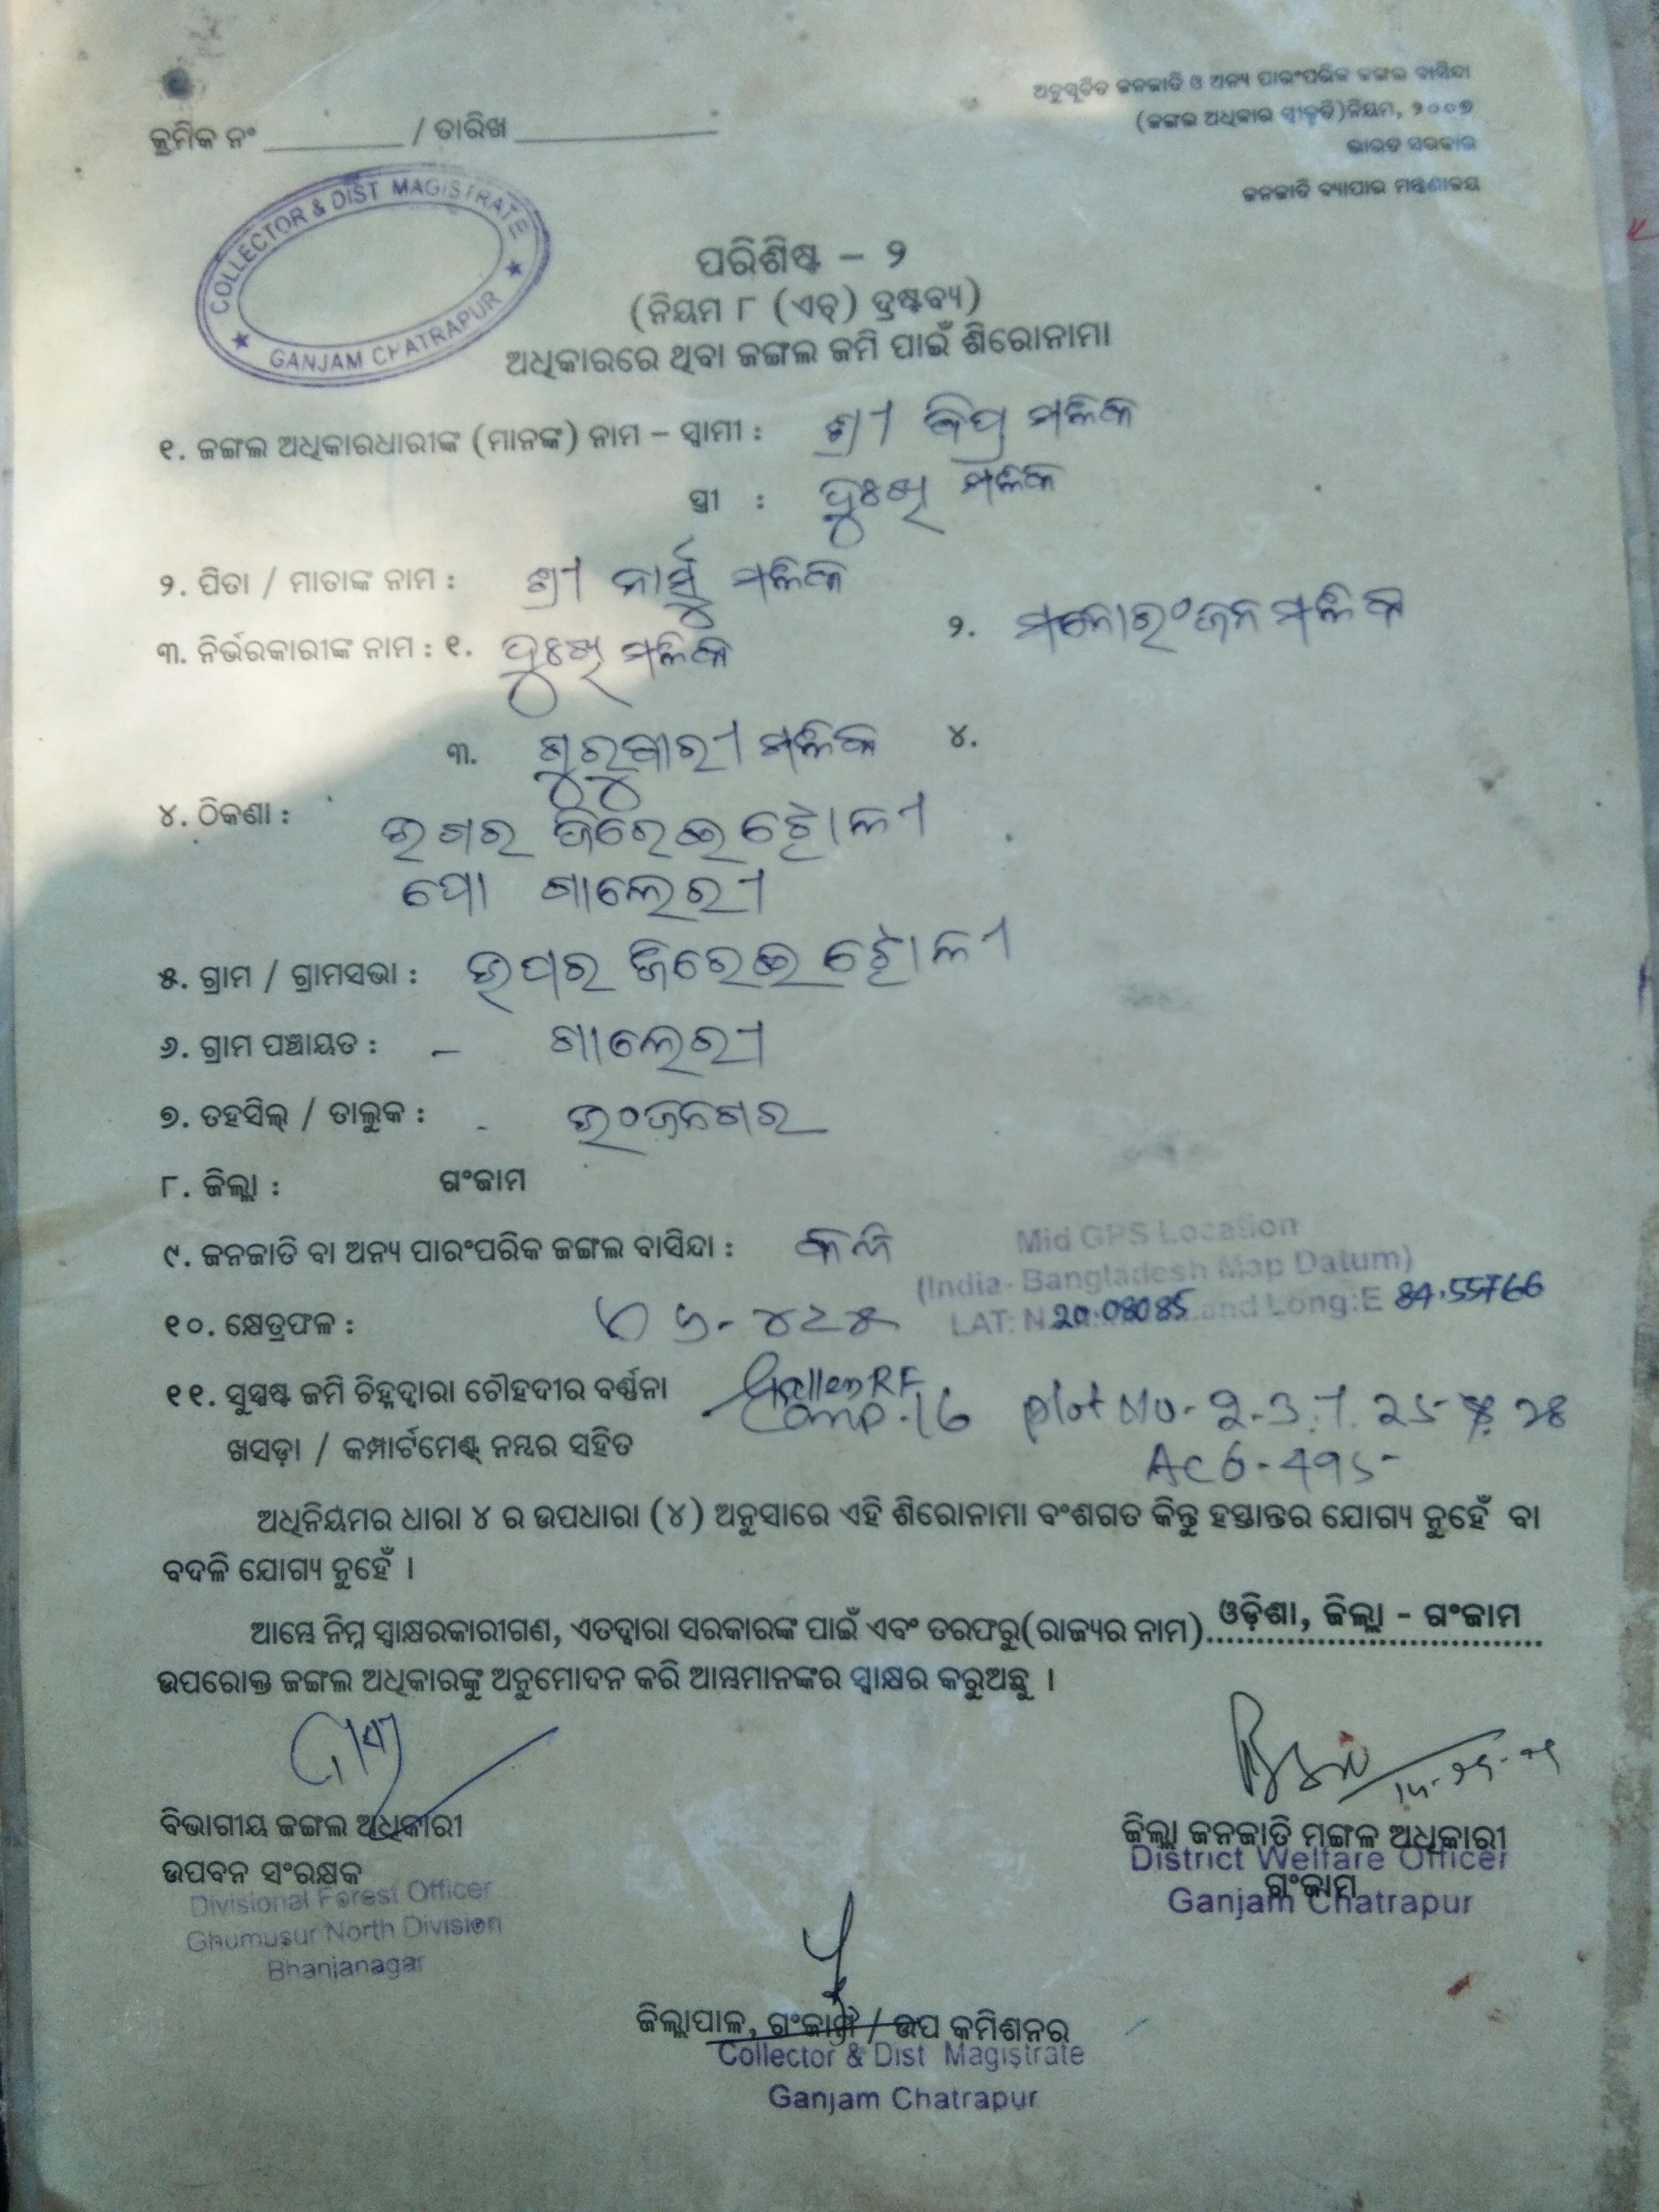 ଅନୁସୂଚିତ ଜନଜାତି ଓ ଅନ୍ୟ ପାରଂପରିକ ଜଙ୍ଗଲ ବାସିନ୍ଦା
(ଜଙ୍ଗଲ ଅଧିକାର ସ୍ୱୀକୃତି)ନିୟମ, ୨୦୦୭
ଭାରତ ସରକାର
ଜନଜାତି ବ୍ୟାପାର ମନ୍ତ୍ରଣାଳୟ
କ୍ରମିକ ନଂ / ତାରିଖ
COLLECTOR & DIST MAGISTRATE
GANJAM CHATRAPUR
ପରିଶିଷ୍ଟ – ୨
(ନିୟମ ୮ (ଏଚ୍) ଦ୍ରଷ୍ଟବ୍ୟ)
ଅଧିକାରରେ ଥିବା ଜଙ୍ଗଲ ଜମି ପାଇଁ ଶିରୋନାମା
୧. ଜଙ୍ଗଲ ଅଧିକାରଧାରୀଙ୍କ (ମାନଙ୍କ) ନାମ – ସ୍ୱାମୀ : ଶ୍ରୀ ମଲ୍ଲିକ
ସ୍ତ୍ରୀ : ଦୁଃଖି ମଲ୍ଲିକ
୨. ପିତା / ମାତାଙ୍କ ନାମ : ଶ୍ରୀ ମଲ୍ଲିକ
୩. ନିର୍ଭରକାରୀଙ୍କ ନାମ : ୧. ଦୁଃଖି ମଲ୍ଲିକ ୨. ମନୋରଂଜନ ମଲ୍ଲିକ
୩. ଗୁରୁବାରୀ ମଲ୍ଲିକ ୪.
୪. ଠିକଣା :
ପୋ ଗାଲେରୀ
୫. ଗ୍ରାମ / ଗ୍ରାମସଭା : ଉପର
୬. ଗ୍ରାମ ପଞ୍ଚାୟତ : – ଗାଲେରୀ
୭. ତହସିଲ୍ / ତାଲୁକ : - ଭଂଜନଗର
୮. ଜିଲ୍ଲା : ଗଂଜାମ
୯. ଜନଜାତି ବା ଅନ୍ୟ ପାରଂପରିକ ଜଙ୍ଗଲ ବାସିନ୍ଦା :
Mid GPS Location
(India- Bangladesh Map Datum)
LAT: N. 20.08085 and Long:E 84.55766
୧୦. କ୍ଷେତ୍ରଫଳ :
୧୧. ସୁସ୍ପଷ୍ଟ ଜମି ଚିହ୍ନଦ୍ୱାରା ଚୌହଦୀର ବର୍ଣ୍ଣନା RF Comp-16 plot No-
ଖସଡ଼ା / କମ୍ପାର୍ଟମେଣ୍ଟ୍ ନମ୍ବର ସହିତ
ଅଧିନିୟମର ଧାରା ୪ ର ଉପଧାରା (୪) ଅନୁସାରେ ଏହି ଶିରୋନାମା ବଂଶଗତ କିନ୍ତୁ ହସ୍ତାନ୍ତର ଯୋଗ୍ୟ ନୁହେଁ ବା
ବଦଳି ଯୋଗ୍ୟ ନୁହେଁ ।
ଆମ୍ଭେ ନିମ୍ନ ସ୍ୱାକ୍ଷରକାରୀଗଣ, ଏତଦ୍ୱାରା ସରକାରଙ୍କ ପାଇଁ ଏବଂ ତରଫରୁ(ରାଜ୍ୟର ନାମ) ଓଡ଼ିଶା, ଜିଲ୍ଲା - ଗଂଜାମ
ଉପରୋକ୍ତ ଜଙ୍ଗଲ ଅଧିକାରଙ୍କୁ ଅନୁମୋଦନ କରି ଆମ୍ଭମାନଙ୍କର ସ୍ୱାକ୍ଷର କରୁଅଛୁ ।
ବିଭାଗୀୟ ଜଙ୍ଗଲ ଅଧିକାରୀ
ଉପବନ ସଂରକ୍ଷକ
Divisional Forest Officer
Ghumusur North Division
Bhanjanagar
ଜିଲ୍ଲା ଜନଜାତି ମଙ୍ଗଳ ଅଧିକାରୀ
District Welfare Officer
ଗଂଜାମ
Ganjam Chatrapur
ଜିଲ୍ଲାପାଳ, ଗଂଜାମ / ଉପ କମିଶନର
Collector & Dist Magistrate
Ganjam Chatrapur